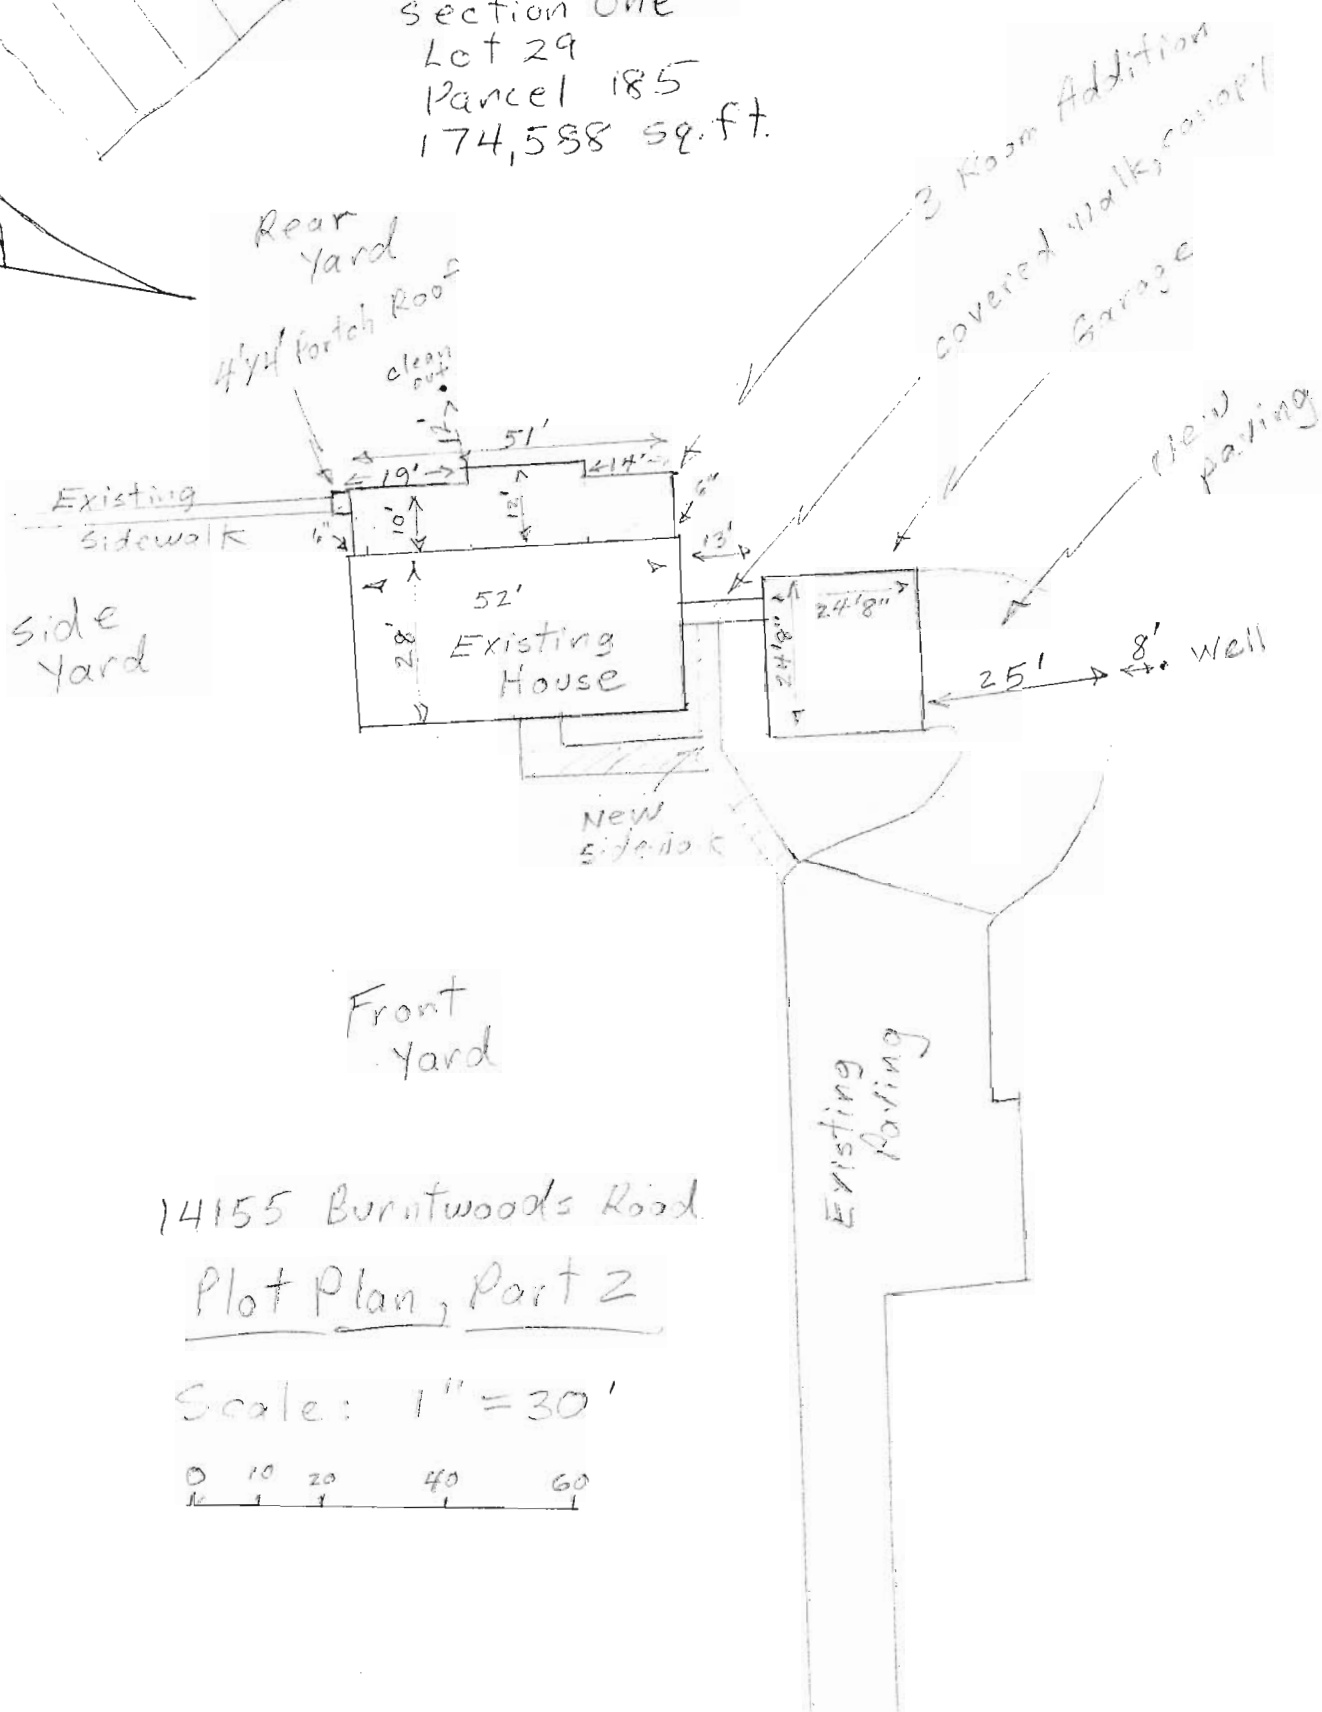 Section One
Lot 29
Parcel 185
174,588 sq.ft.
3 Room Addition
covered walk, canopy
Garage
New
paving
Rear
Yard
4'x4' Portch Roof
clean
out
12'
51'
19'
14'
Existing
Sidewalk
6"
10'
12'
6"
13'
52'
28'
Existing
House
24'8"
24'8"
25'
8'
Well
Side
Yard
New
Sidewalk
Front
Yard
Existing
Paving
14155 Burntwoods Road
Plot Plan, Part 2
Scale: 1" = 30'
0 10 20 40 60